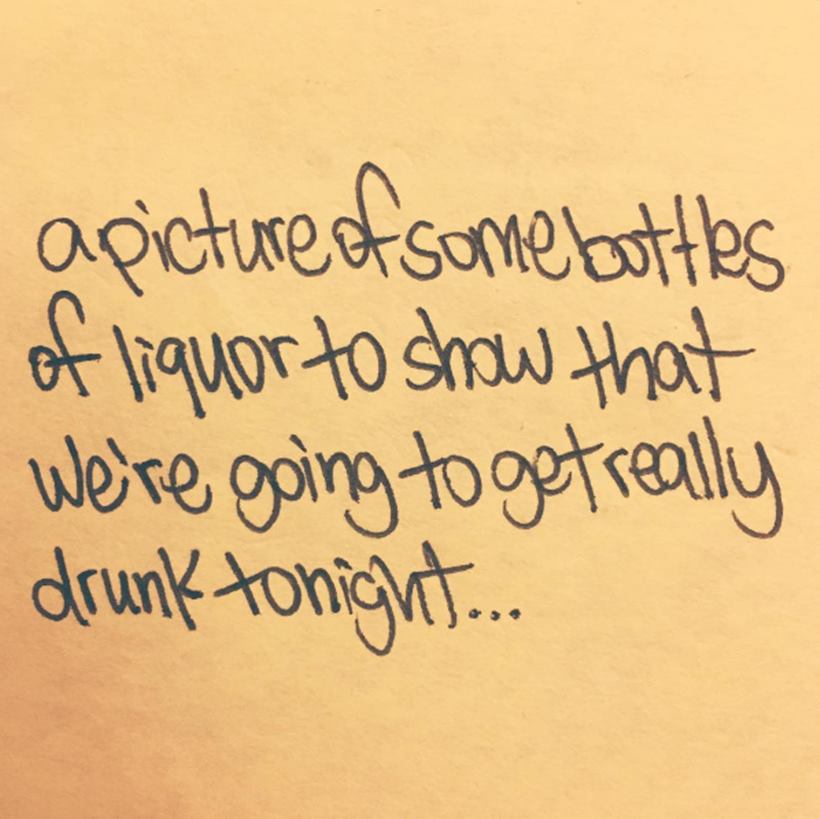 a picture of some bottles
of liquor to show that
we're going to get really
drunk tonight...